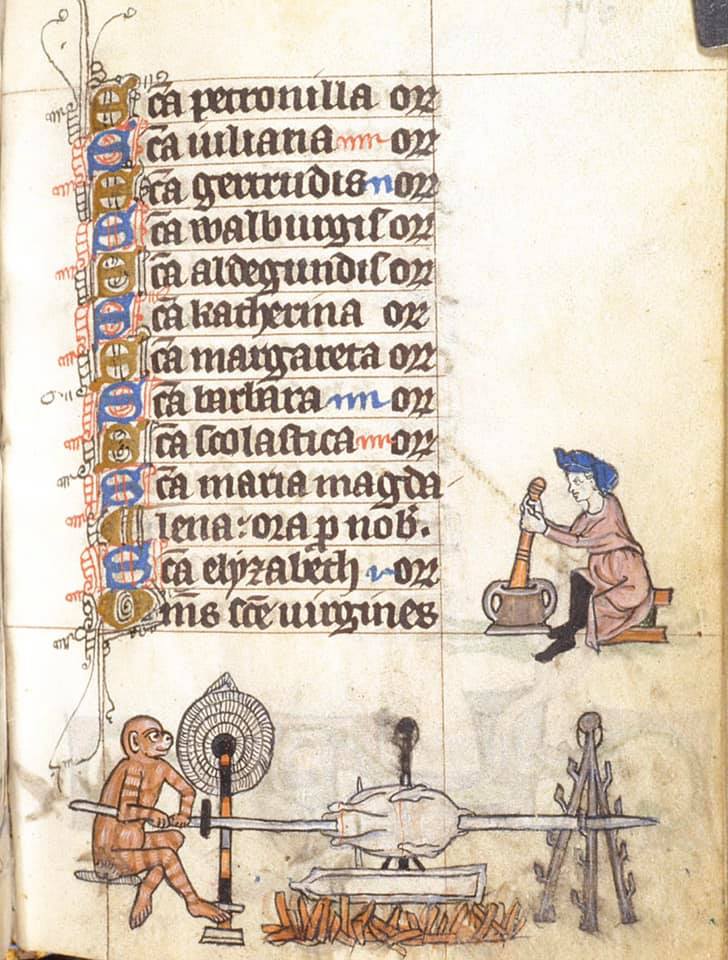 Sca petronilla orz
Sca iuliana orz
Sca gertrudis orz
Sca walburgis orz
Sca aldegundis orz
Sca katherina orz
Sca margareta orz
Sca barbara orz
Sca scolastica orz
Sca maria magda
lena: ora p nob.
Sca elyzabeth orz
Oms sce uirgines